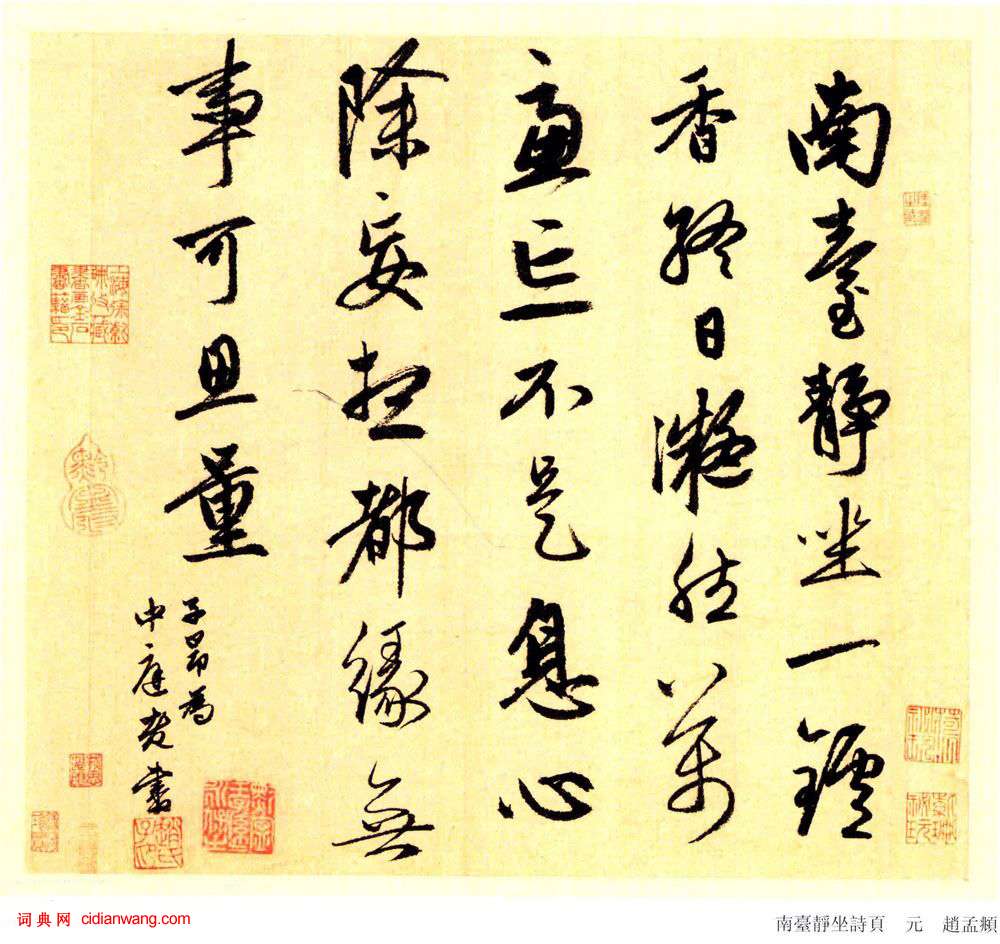 南臺靜坐一鑪
香終日凝然萬
慮亡不是息心
除妄想都緣無
事可思量
子昂為
中庭老書
趙氏子昂
词典网 cidianwang.com
南臺靜坐詩頁 元 趙孟頫